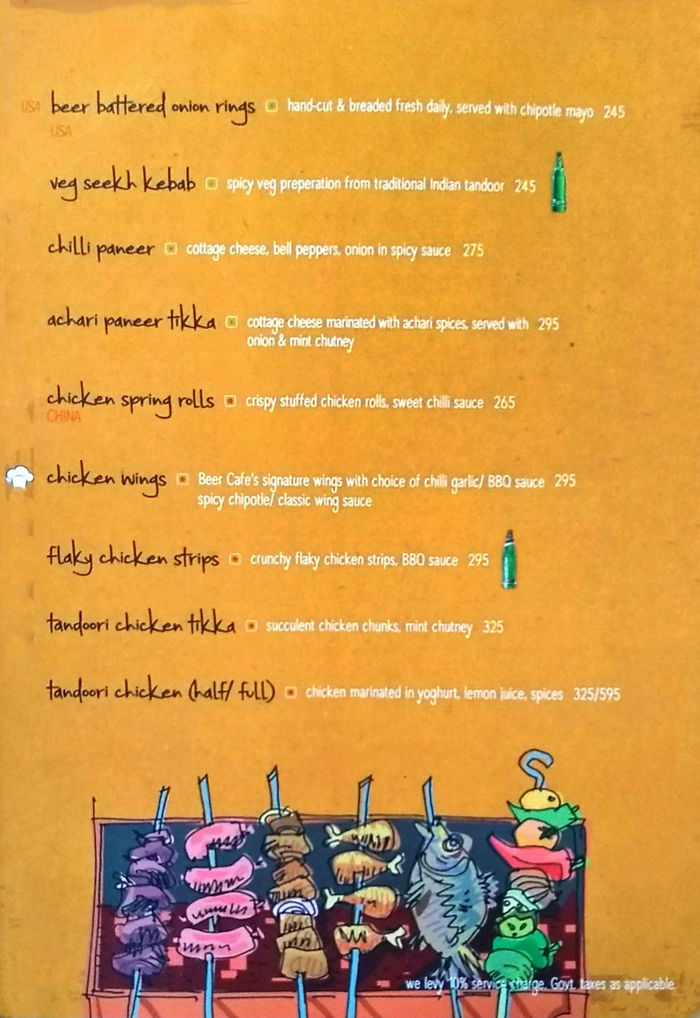 USA beer battered onion rings hand-cut & breaded fresh daily, served with chipotle mayo 245
USA
veg seekh kebab spicy veg preperation from traditional Indian tandoor 245
chilli paneer cottage cheese, bell peppers, onion in spicy sauce 275
achari paneer tikka cottage cheese marinated with achari spices, served with 295
onion & mint chutney
chicken spring rolls crispy stuffed chicken rolls, sweet chilli sauce 265
CHINA
chicken wings Beer Cafe's signature wings with choice of chilli garlic/ BBQ sauce 295
spicy chipotle/ classic wing sauce
flaky chicken strips crunchy flaky chicken strips, BBQ sauce 295
tandoori chicken tikka succulent chicken chunks, mint chutney 325
tandoori chicken (half/ full) chicken marinated in yoghurt, lemon juice, spices 325/595
we levy 10% service charge. Govt. taxes as applicable.